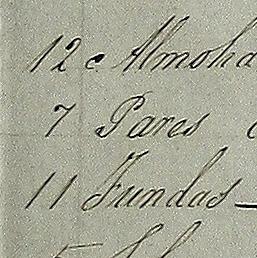 12 c Almoha
7 Pares
11 Fundas